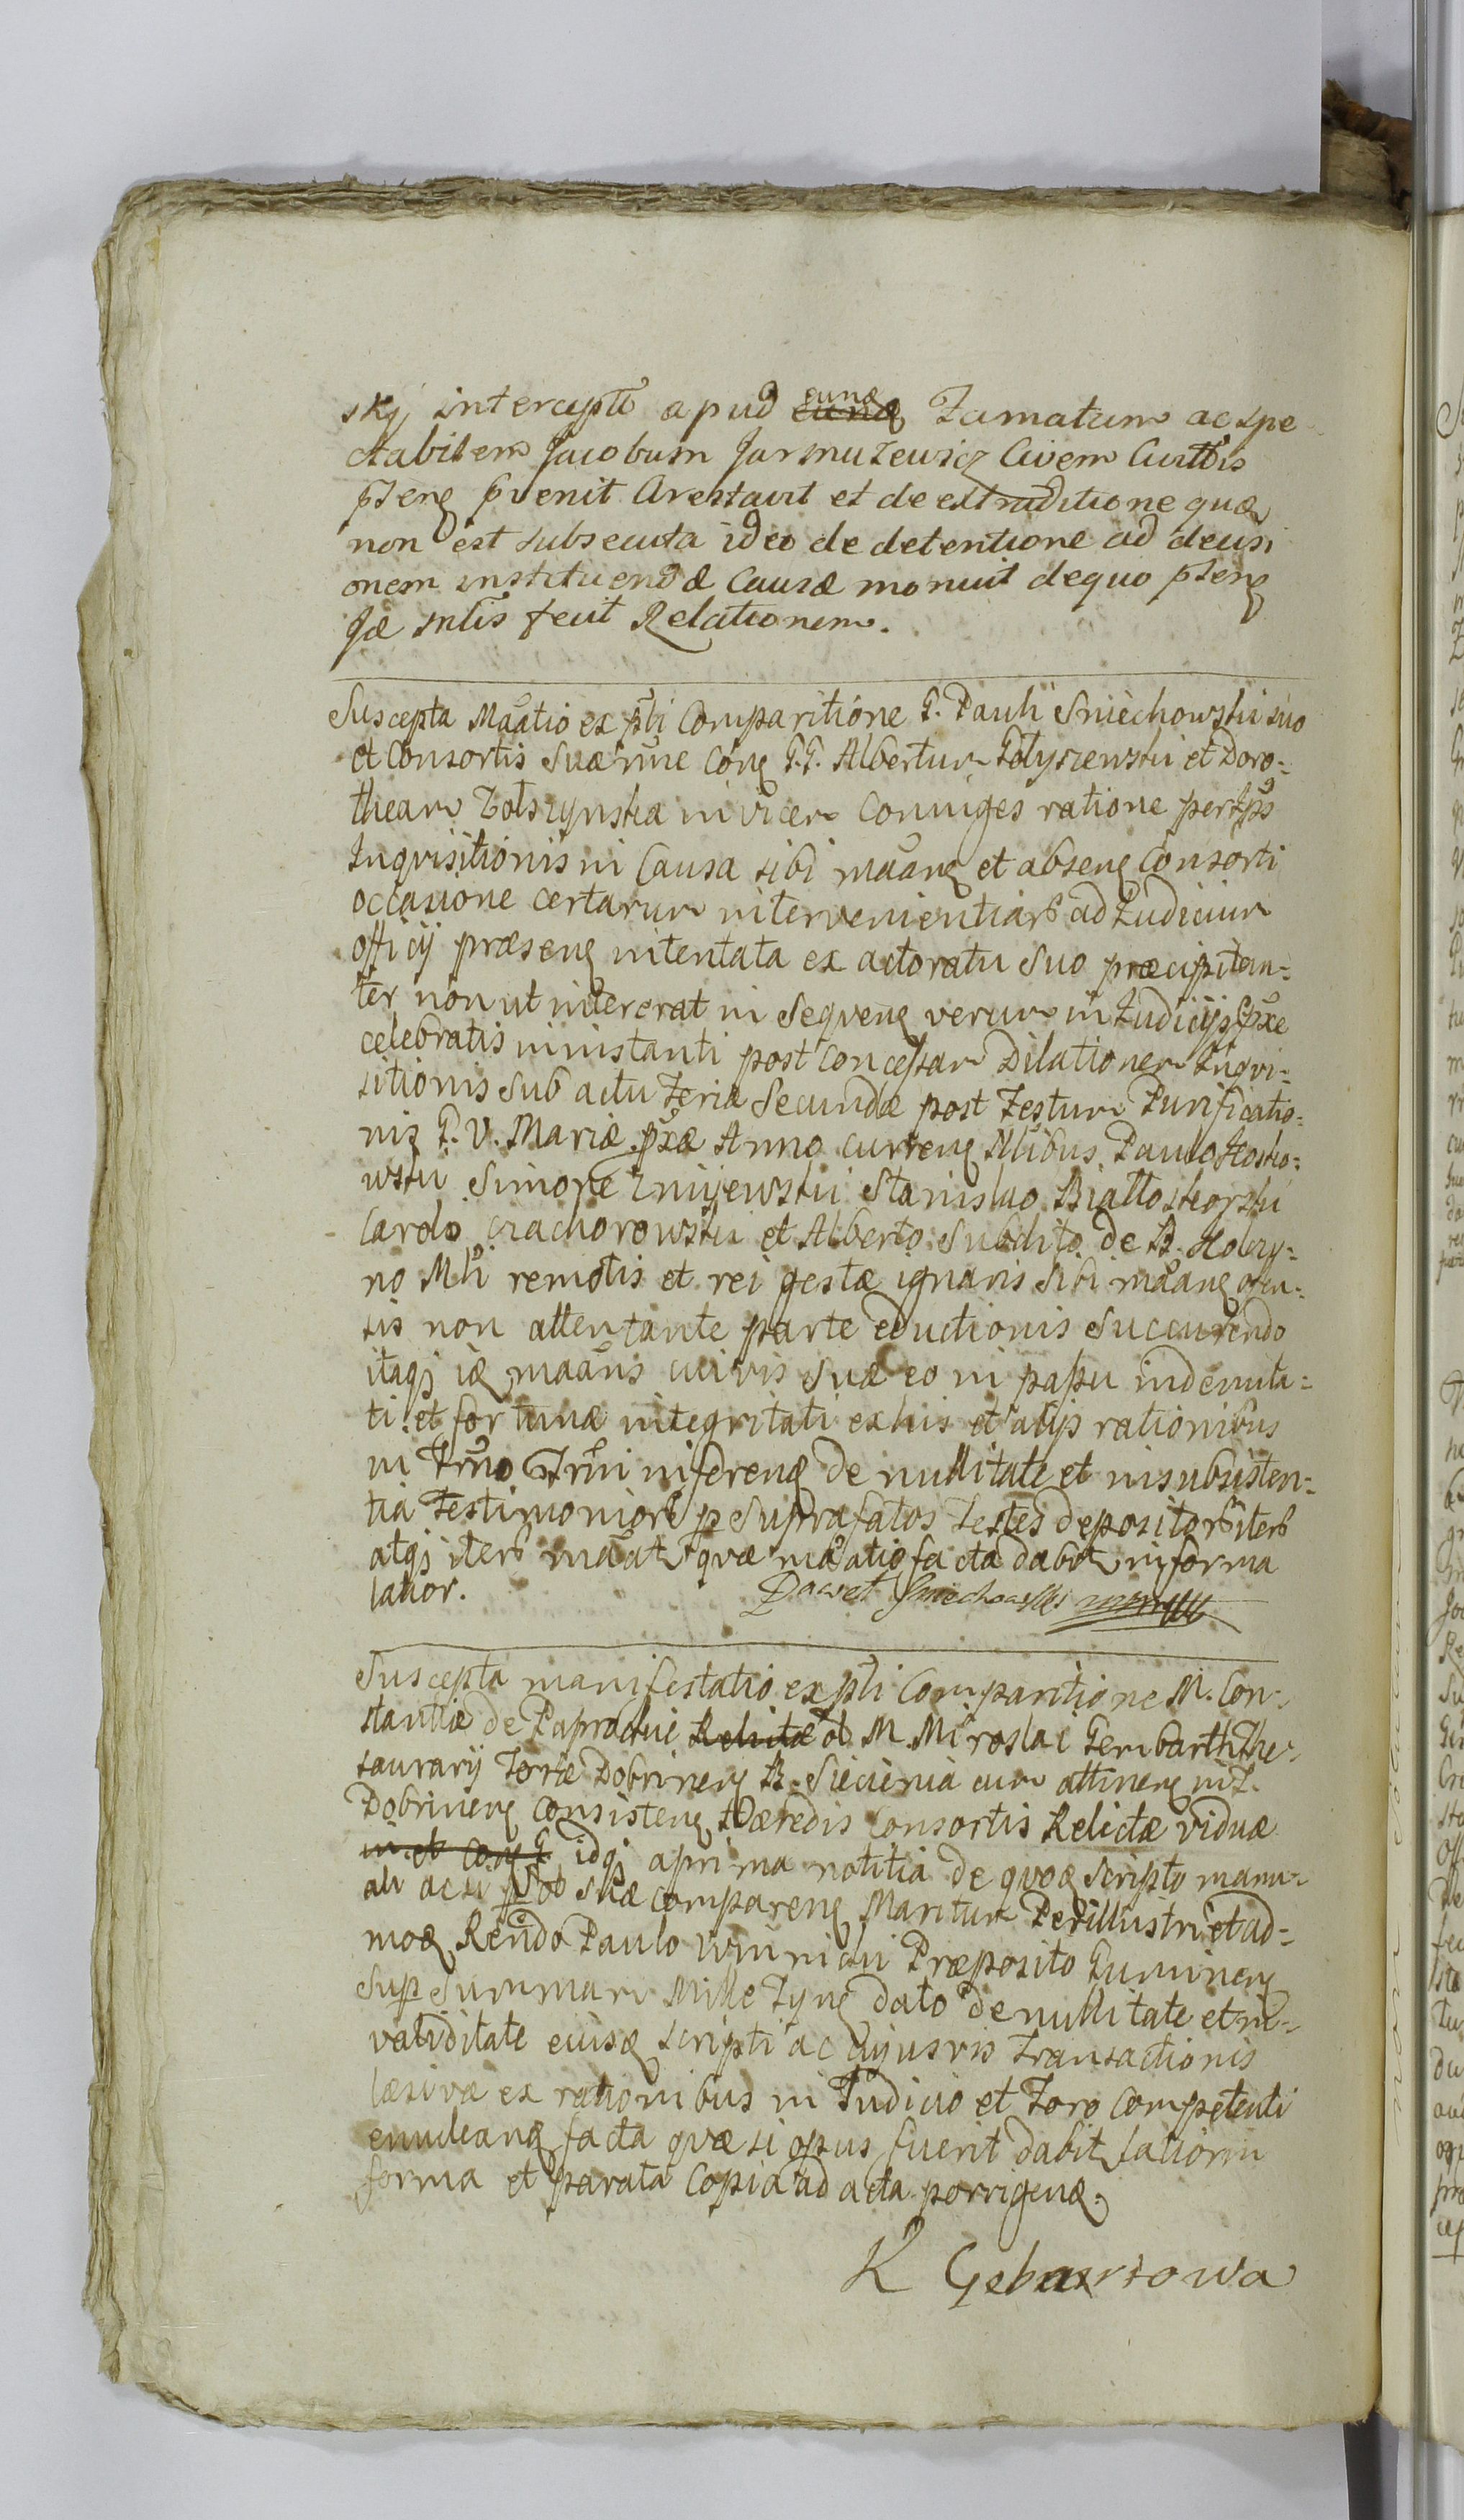 skj intercepto apud eunq Famatum ac spe
ctabilem Jacobum Jarmuzewicz Civem Civittis
ptenq pvenit Arestavit et de extraditione quæ
non est subsecuta ideo de detentione ad decisi
onem instituendæ Causæ monuit de quo ptenq
Jæ mlis fecit Relationem.
Suscepta Maatio ex pli Comparitione G. Pauli Sniechowski suo
et Consortis Suæ nne Conq G.G. Albertum et Doro-
theam invicem Coniuges ratione
Inqvisitionis in Causa sibi maanq et absenq Consorti
occasione certarum intervenientiarb ad Judicium
officij præsenq intentata ex actoratu Suo præcipitan-
ter non ut intererat in Seqvenq verum in Judicijs pxe
celebratis in instanti post Concessam Dilationem Inqvi-
sitionis Sub actu Feria Secunda post Festum Purificatio-
nis B. V. Mariæ pxæ Anno currenq Nlibus Paulo Kosko-
wski Simone Zmijewski Stanislao Białłoskorski
Carolo Czachorowski et Alberto Subdito de B.
no Mli remotis et rei gestæ ignaris Sibi maanq
sis non attentante parte eductionis Succurendo
itaqj iq maans cuivis Suæ eo in passu indemnita-
ti et fortunæ integritati ex his et alijs rationibus
in Trno Trmi inferenq de nullitate et insubsisten-
tia Testimoniorb p Suprafatos Testes depositorb iterb
atqj iterb maat qvæ maatio facta dabit in forma
latior. Paweł Sniechowski
Suscepta manifestatio ex pli Comparitione M. Con-
stantiæ de Paprockie Relictæ ol. M. Miroslai Gembarth The-
saurarij Terræ Dobrinenq B. Siecienia cum attinenq in T.
Dobrinenq Consistenq Hæredis Consortis Relictæ viduæ
in et Conq G. idqj a prima notitia de qvoq Scripto manu-
ali acsi p ol Suæ comparenq Maritum Perillustri et ad-
moq Rendo Paulo Præposito
Sup Summam Mille Tynq dato de nullitate et in-
validitate eiusq scripti ac cujusvis transactionis
læsivæ ex rationibus in Judicio et Foro Competenti
enucleanq facta qvæ si opus fuerit dabit latiorem
forma et parata Copia ad acta porrigenq.
K Gebartowa